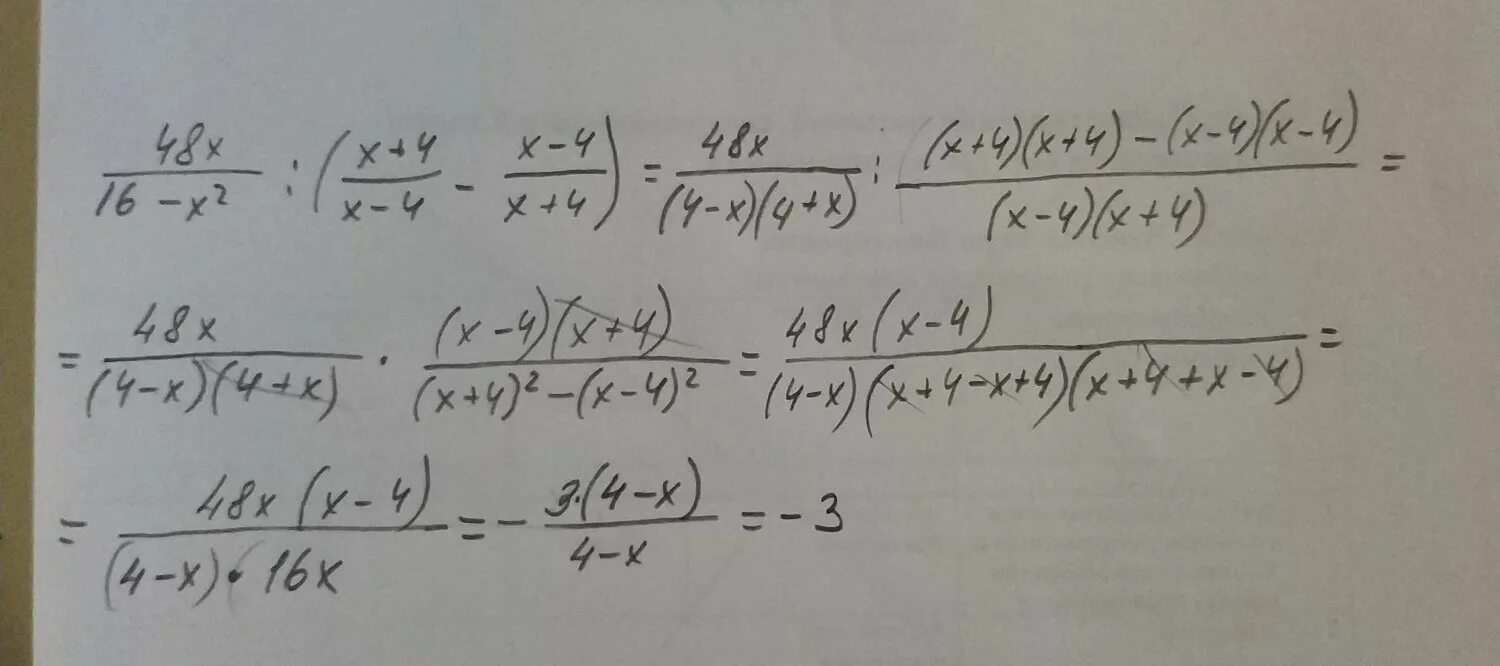 48x/(16 - x²) : ((x+4)/(x-4) - (x-4)/(x+4)) = 48x/((4-x)(4+x)) : ((x+4)(x+4) - (x-4)(x-4))/((x-4)(x+4)) =
= 48x/((4-x)(4+x)) · ((x-4)(x+4))/((x+4)² - (x-4)²) = 48x(x-4)/((4-x)(x+4-x+4)(x+4+x-4)) =
= 48x(x-4)/((4-x)·16x) = - 3·(4-x)/(4-x) = -3